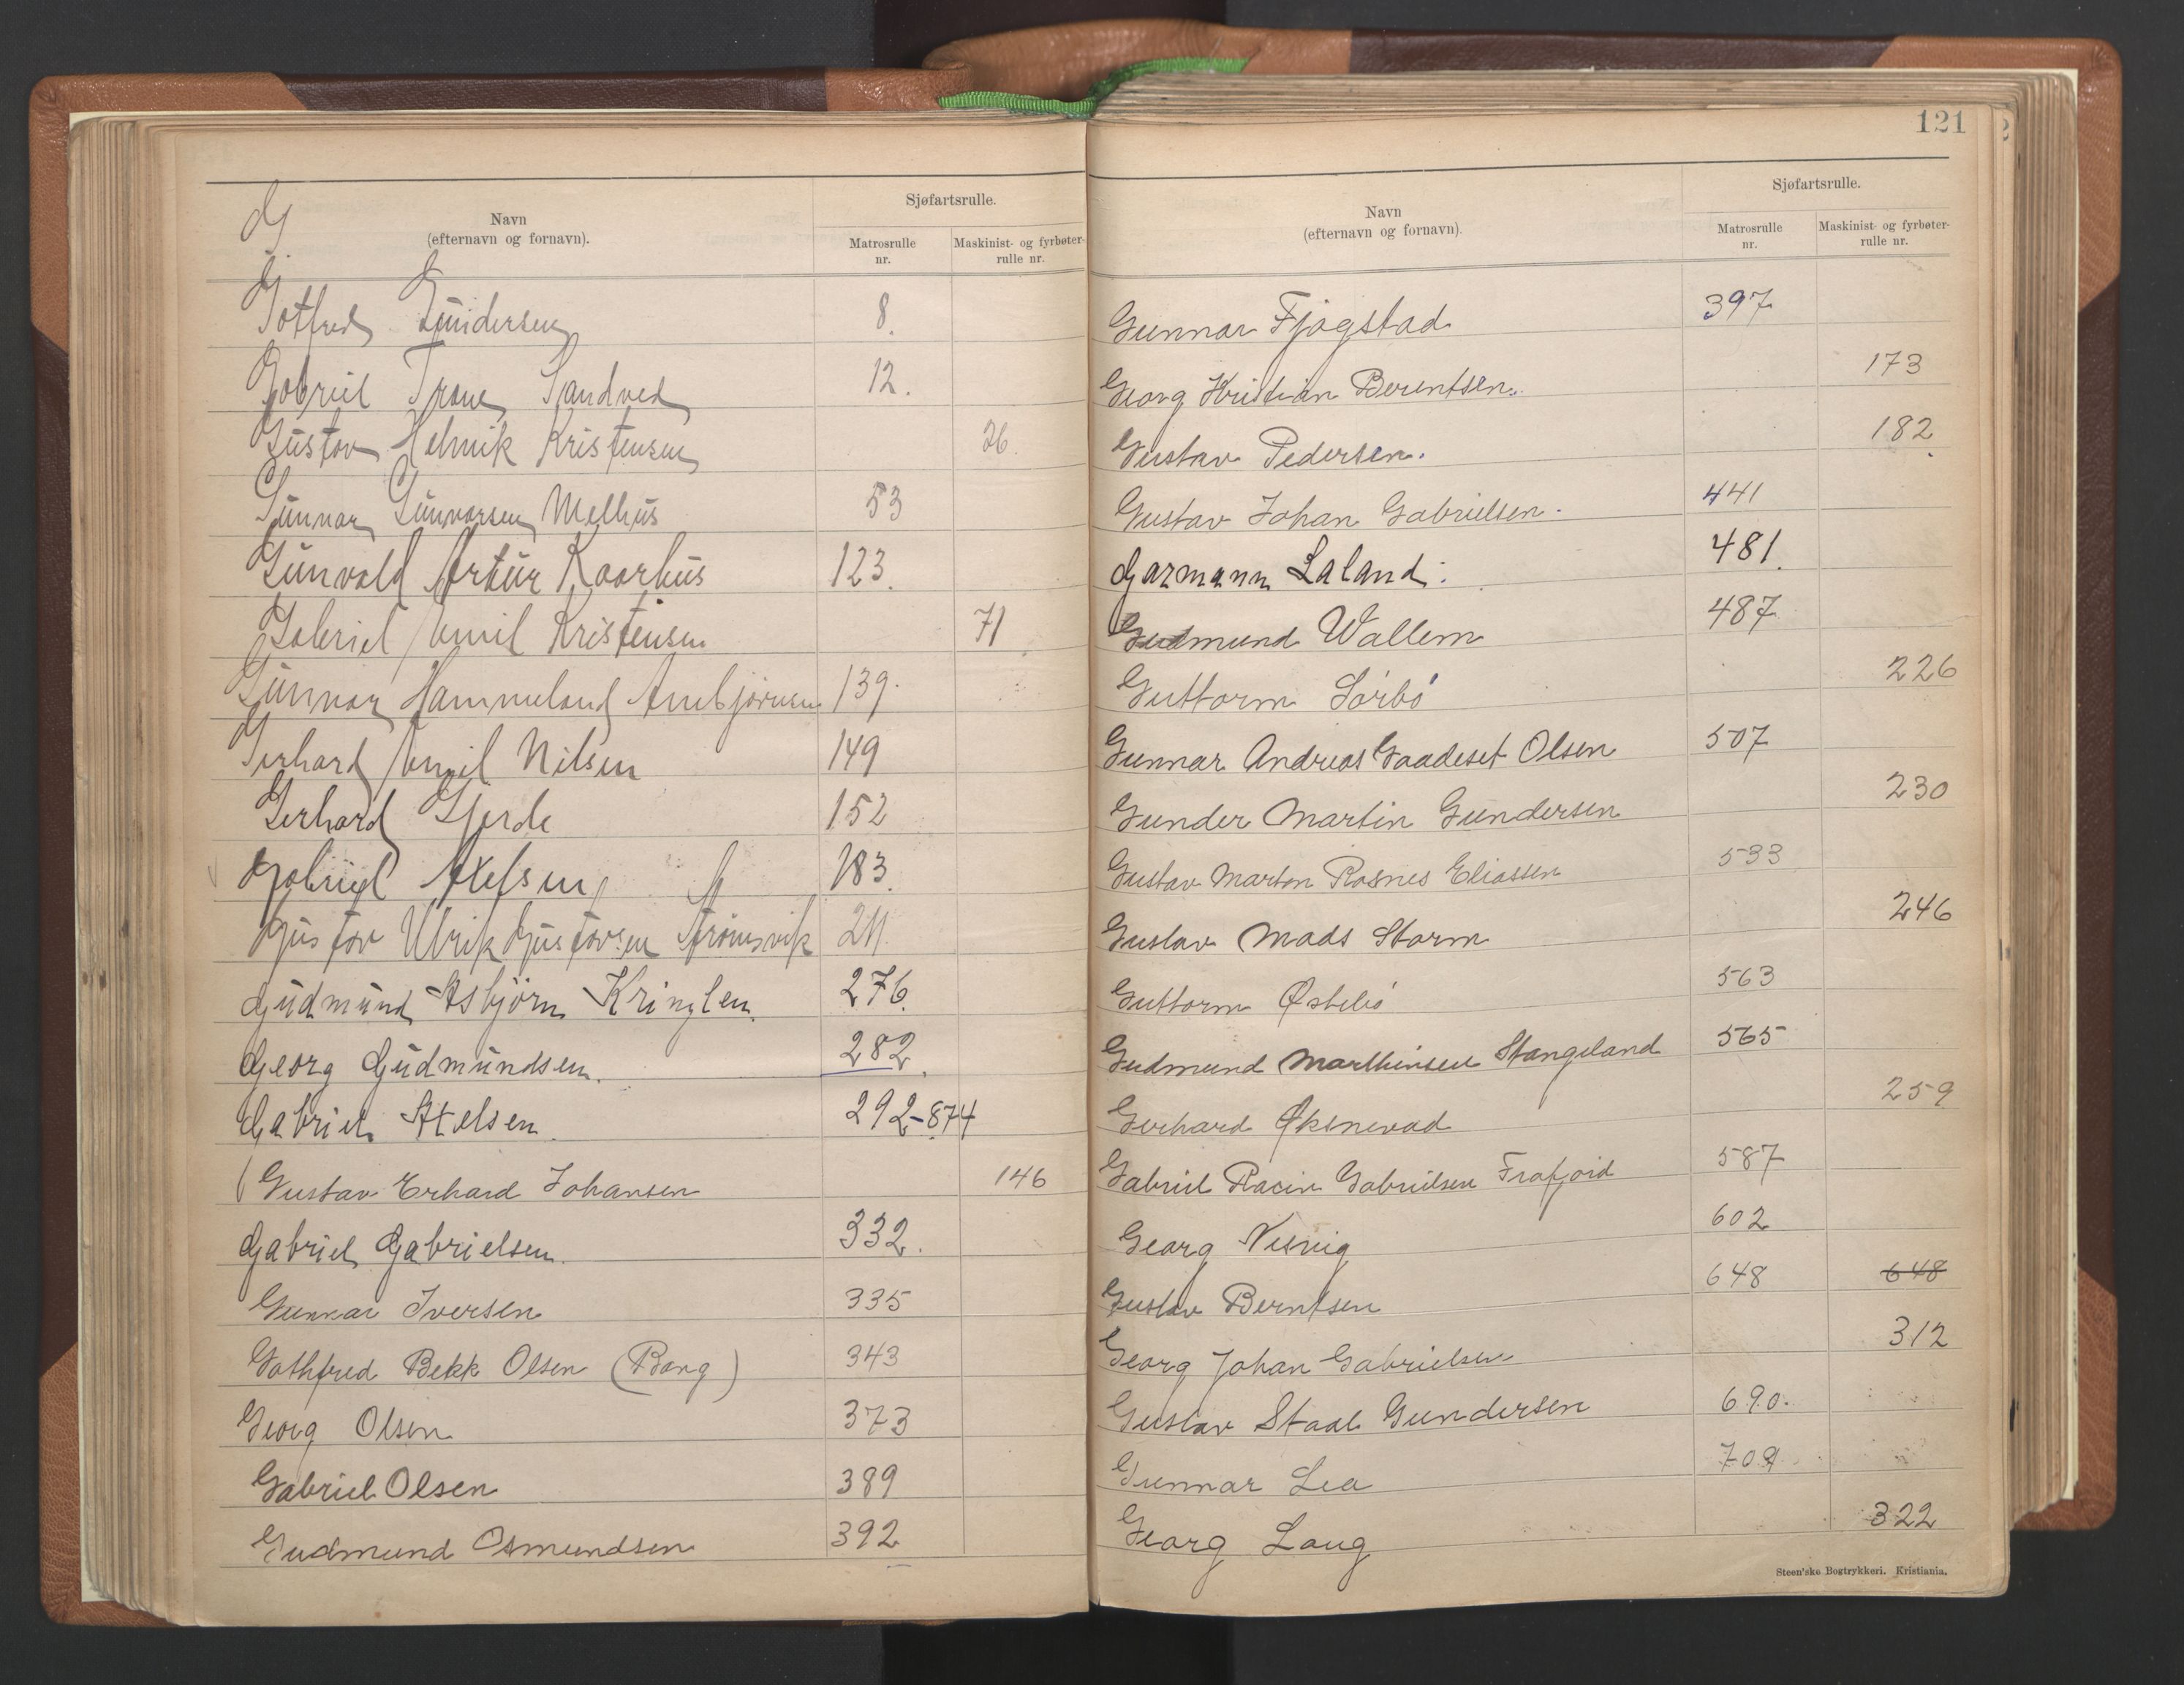 G
Navn
(efternavn og fornavn).
Sjøfartsrulle.
Matrosrulle
nr.
Maskinist- og fyrbøter-
rulle nr.
Gotfred Gundersen 8.
Gabriel Trane Sandved 12.
Gustav Henrik Kristensen 26.
Gunnar Gunnarsen Melhus 53
Gunvald Artur Kaarhus 123.
Gabriel Emil Kristensen 71
Gunnar Hammeland Arnbjørnsen 139.
Gerhard Emil Nilsen 149
Gerhard Gjerde 152
Gabriel Axelsen 183.
Gustav Ulrik Gustavsen Strømsvik 211.
Gudmund Asbjørn Kringlen. 276.
Georg Gudmundsen. 282.
Gabriel Axelsen. 292-874
Gustav Erhard Johansen 146
Gabriel Gabrielsen. 332.
Gunnar Iversen 335
Gothfred Bekk Olsen (Bang) 343
Georg Olsen 373
Gabriel Olsen 389
Gudmund Osmundsen 392
121
Navn
(efternavn og fornavn).
Sjøfartsrulle.
Matrosrulle
nr.
Maskinist- og fyrbøter-
rulle nr.
Gunnar Fjogstad 397
Georg Kristian Berentsen. 173
Gustav Pedersen. 182
Gustav Johan Gabrielsen. 441
Garmann Laland. 481.
Gudmund Wallem 487
Guttorm Sørbø 226
Gunnar Andreas Gaadeset Olsen 507
Gunder Martin Gundersen 230
Gustav Marton Rosnes Eliassen 533
Gustav Mads Storm 246
Guttorm Østebø 563
Gudmund Marthinsen Stangeland 565
Gerhard Øksnevad 259
Gabriel Racin Gabrielsen Frafjord 587
Georg Nesvig 602
Gustav Berntsen 648 648
Georg Johan Gabrielsen 312
Gustav Staal Gundersen 690.
Gunnar Lea 709
Georg Laug 322
Steen'ske Bogtrykkeri. Kristiania.